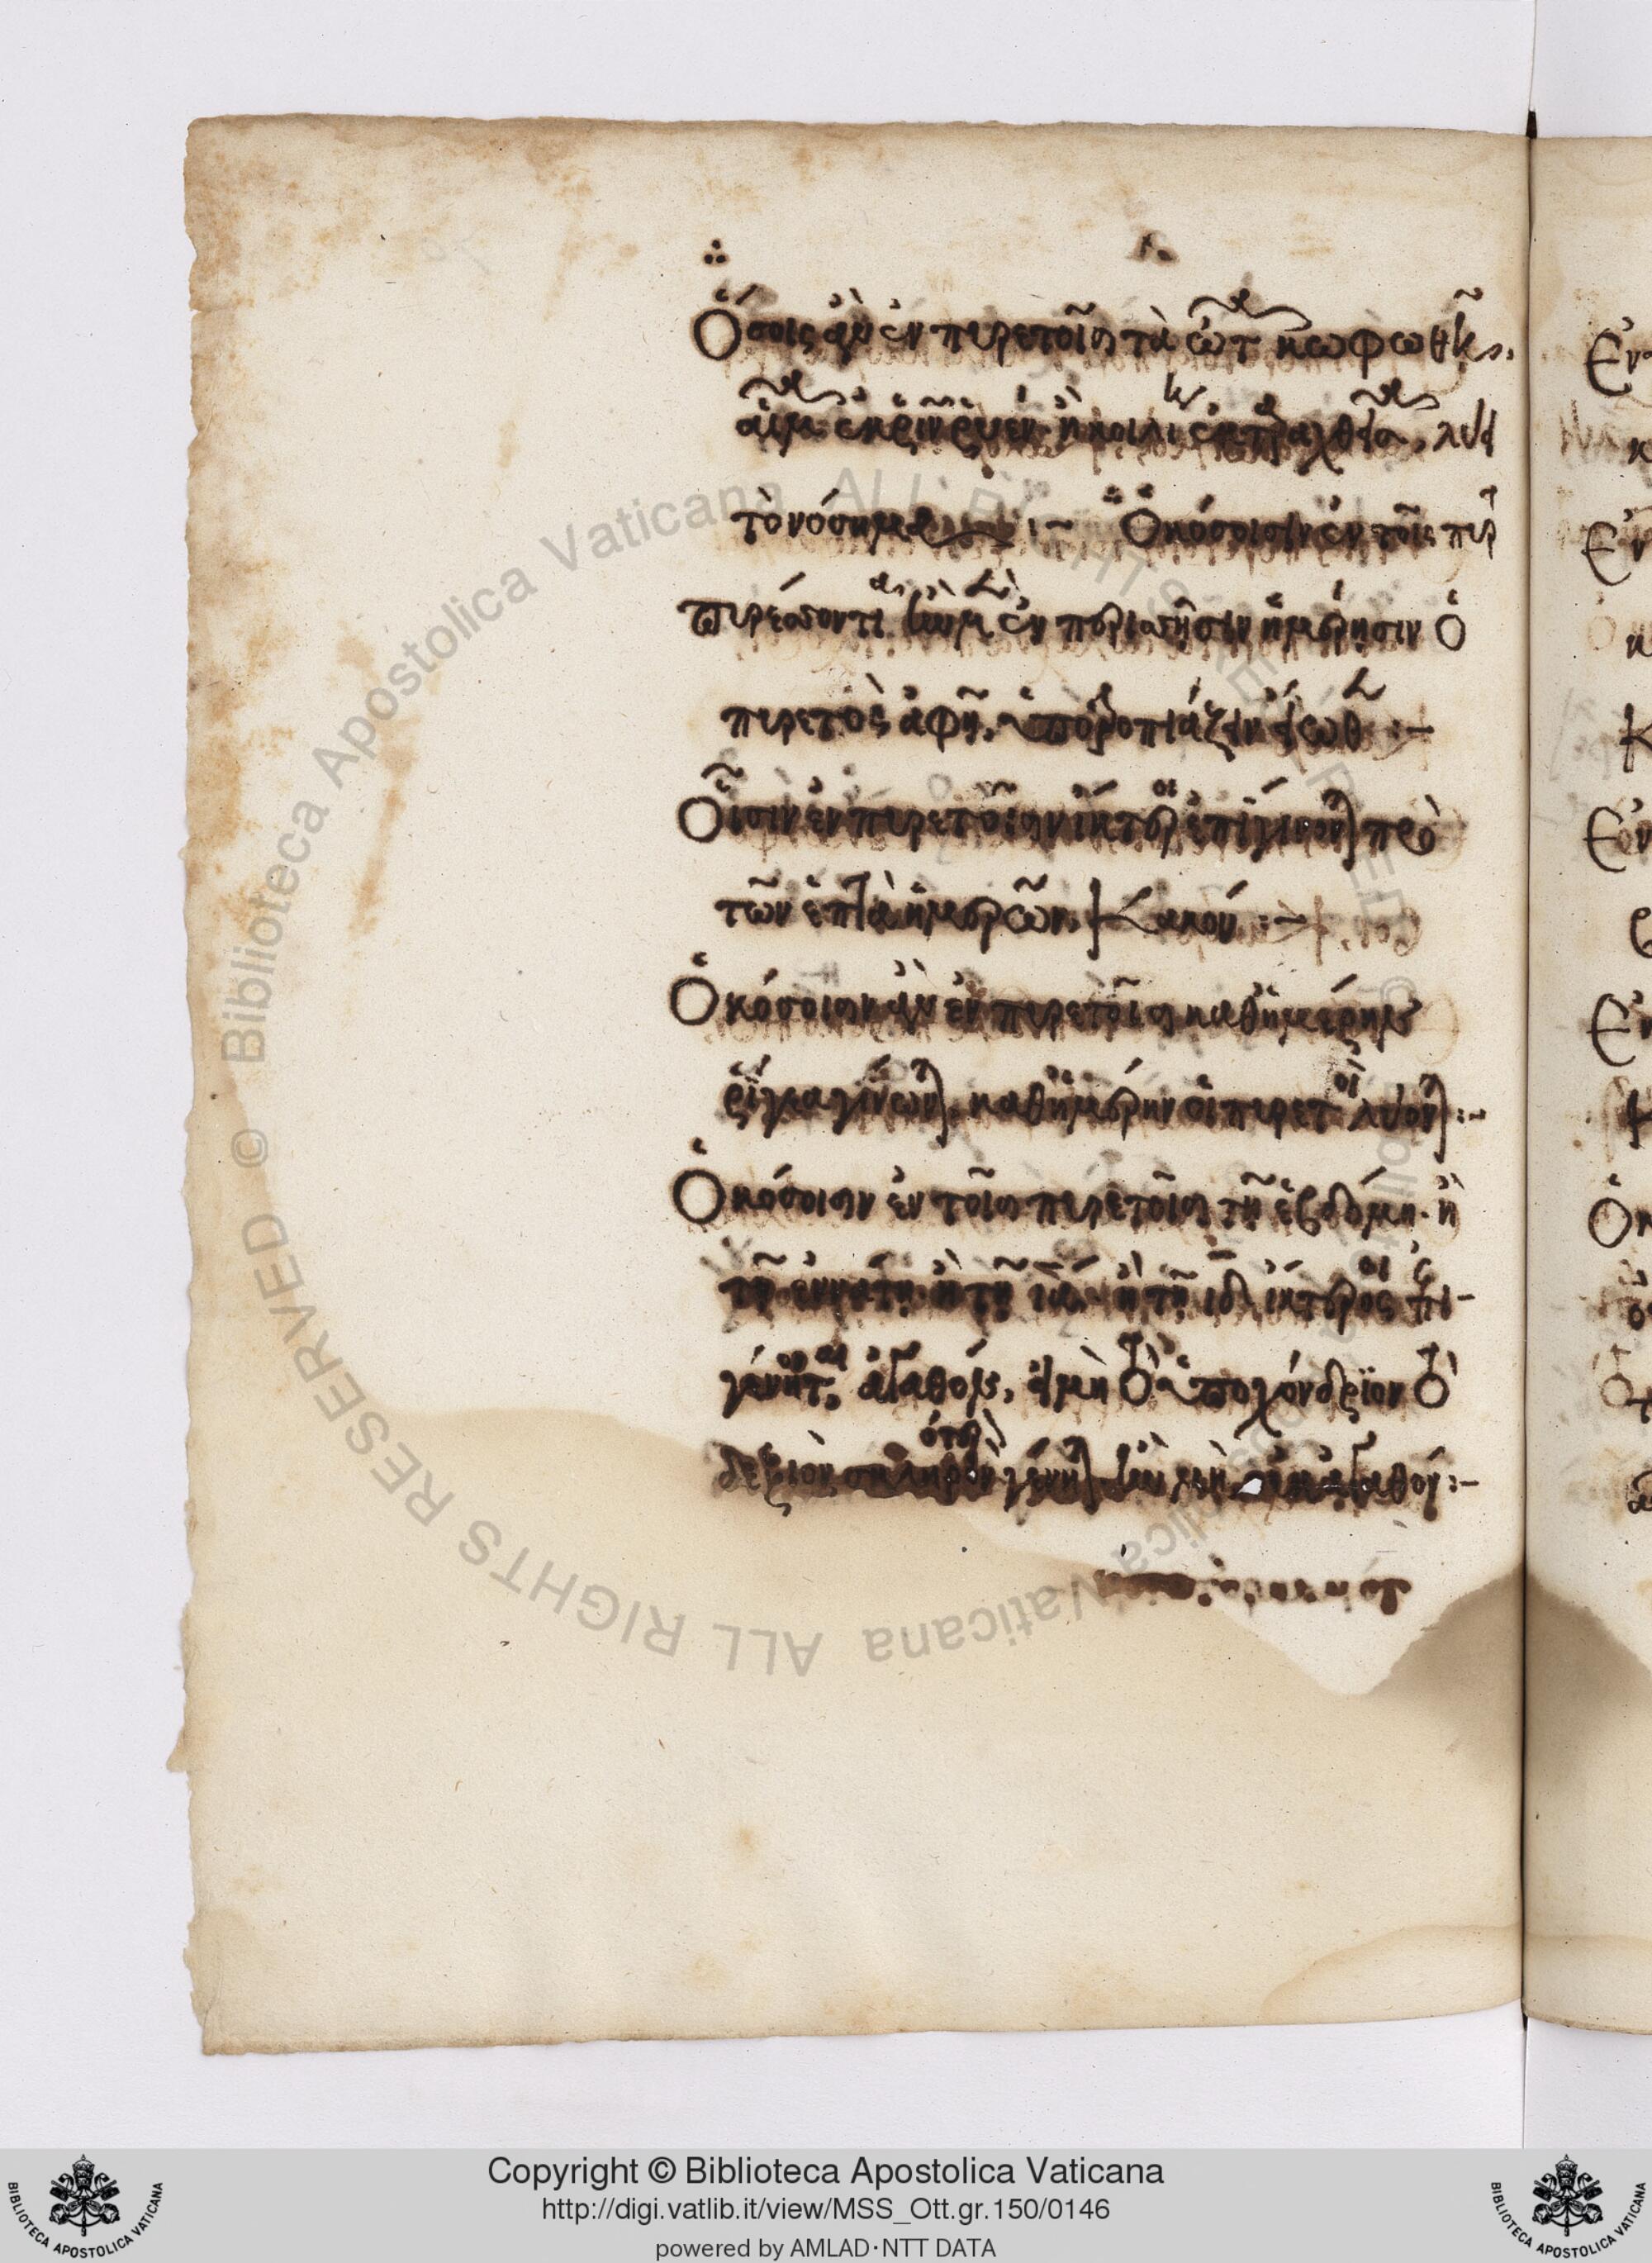 Ὅσοις ἂν ἐν πυρετοῖσι τὰ ὦτα κωφωθῇ,
αἷμα ἐκ ῥινῶν ῥυὲν ἢ κοιλίη ἐκταραχθεῖσα, λύει
τὸ νόσημα :~ Ὁκόσοισιν ἐν τοῖς πυρ
πυρέσσοντι ἢν μὴ ἐν περισσῇσιν ἡμέρῃσιν ὁ
πυρετὸς ἀφῇ, ὑποτροπιάζειν εἴωθε :~
Οἷσιν ἐν πυρετοῖσιν ἴκτεροι ἐπιγίνονται πρὸ
τῶν ἑπτὰ ἡμερῶν, κακόν :~
Ὁκόσοισιν ἂν ἐν πυρετοῖσι καθημέρην
ῥίγεα γίνωνται, καθημέρην οἱ πυρετοὶ λύονται :~
Ὁκόσοισιν ἐν τοῖσι πυρετοῖσι τῇ ἑβδόμῃ ἢ
τῇ ἐννάτῃ ἢ τῇ ἢ τῇ ιδ ἴκτερος ἐπι-
γένηται, ἀγαθόν, εἰ μὴ τὸ ὑποχόνδριον τὸ
δεξιὸν σκληρὸν γένηται ἢν δὲ μὴ οὐκ ἀγαθόν :~
Copyright © Biblioteca Apostolica Vaticana
http://digi.vatlib.it/view/MSS_Ott.gr.150/0146
powered by AMLAD·NTT DATA
BIBLIOTECA APOSTOLICA VATICANA
BIBLIOTECA APOSTOLICA VATICANA
Biblioteca Apostolica Vaticana ALL RIGHTS RESERVED ©